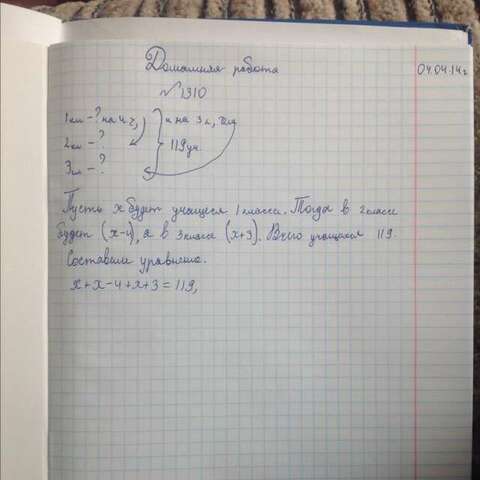 Домашняя работа
04.04.14г
№1310
1кл - ? на 4 г, и на 3 г,
2кл - ? 119 уч.
3кл - ?
Пусть х будет учащиеся 1 класса. Тогда в 2 классе
будет (х-4), а в 3 класса (х+3). Всего учащиеся 119.
Составим уравнение.
х+х-4+х+3=119,